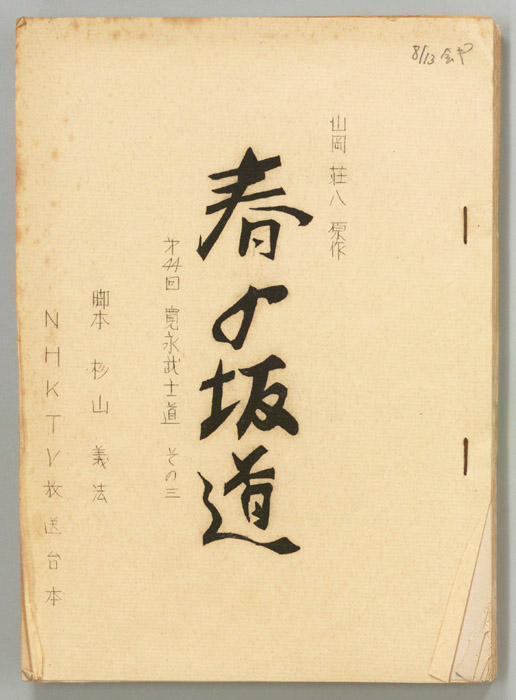 8/13
山岡 荘八 原作
春の坂道
才44回 寛永武士道 その三
脚本 杉山 義法
NHKTV放送台本